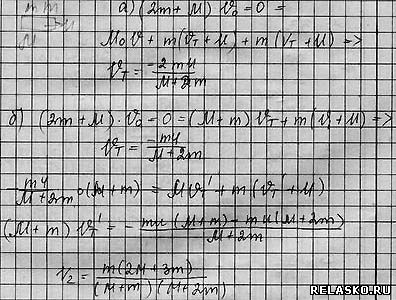 m m
M
а) (2m + M) v₀ = 0 =
M₀ v + m(v_T + u) + m (v_T + u) =>
v_T = -2mu / M + 2m
б) (2m + M) · v₀ = 0 = (M + m) v_T + m(v + u) =>
v_T = -mu / M + 2m
- mu / M + 2m · (M + m) = M v_T' + m (v_T' + u)
(M + m) v_T' = - mu (M + m) - mu (M + 2m) / M + 2m
v₂ = m(2M + 3m) / (M + m) (M + 2m)
RELASKO.RU